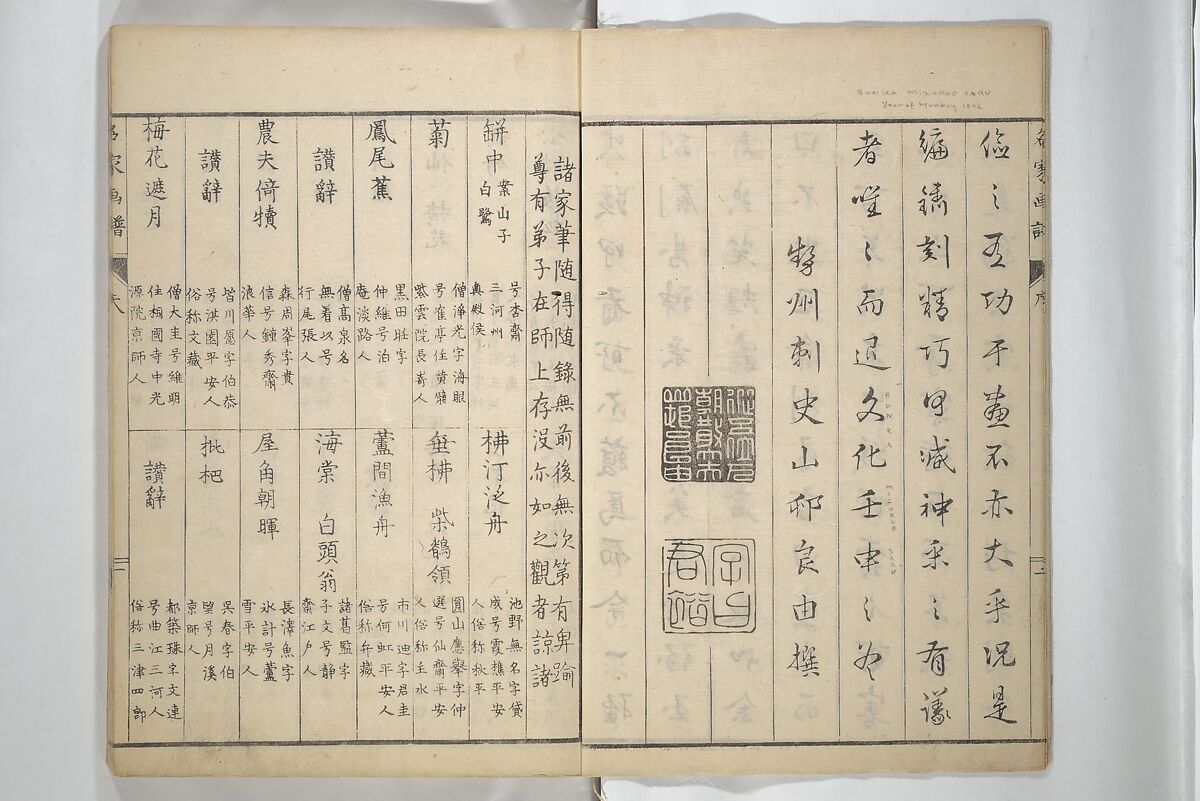 名家画譜 序 二
BUNKA MIZUNOE SARU
Year of Monkey 1812
之功于畫不亦大乎況是
編鐫刻精巧毋減神采之有議
者唯之而退文化壬申之冬
BUNKA MIZUNOE SARU
州刺史山邨良由撰
諸家筆随得随錄無前後無次第有卑踰
尊有弟子在師上存没亦如之觀者諒諸
缾中 案山子 白鷺
号杏齋
三河州
奥殿侯
菊
僧淨光字海眼
号隺亭住黄檗
紫雲院長崎人
鳳尾蕉
黒田旺字
仲維号泊
庵淡路人
讃辭
僧高泉名
無着以号
行尾張人
農夫倚犢
森周峯字貴
信号鐘秀齋
浪華人
讃辭
皆川愿字伯恭
号淇園平安人
俗称文藏
梅花遮月
僧大圭号維明
住相國寺中光
源院京師人
柳汀泛舟
池野無名字貸
成号霞樵平安
人俗称秋平
垂柳 柴鶺領
圓山應舉字仲
選号仙齋平安
人俗称主水
蘆間漁舟
市川迪字君圭
号何虹平安人
俗称弁藏
海棠 白頭翁
諸葛監字
子文号静
齋江户人
屋角朝暉
長澤魚字
氷計号蘆
雪平安人
枇杷
呉春字伯
望号月溪
京師人
讃辭
都築珠字文連
号曲江三河人
俗称三津四郎
名家画譜